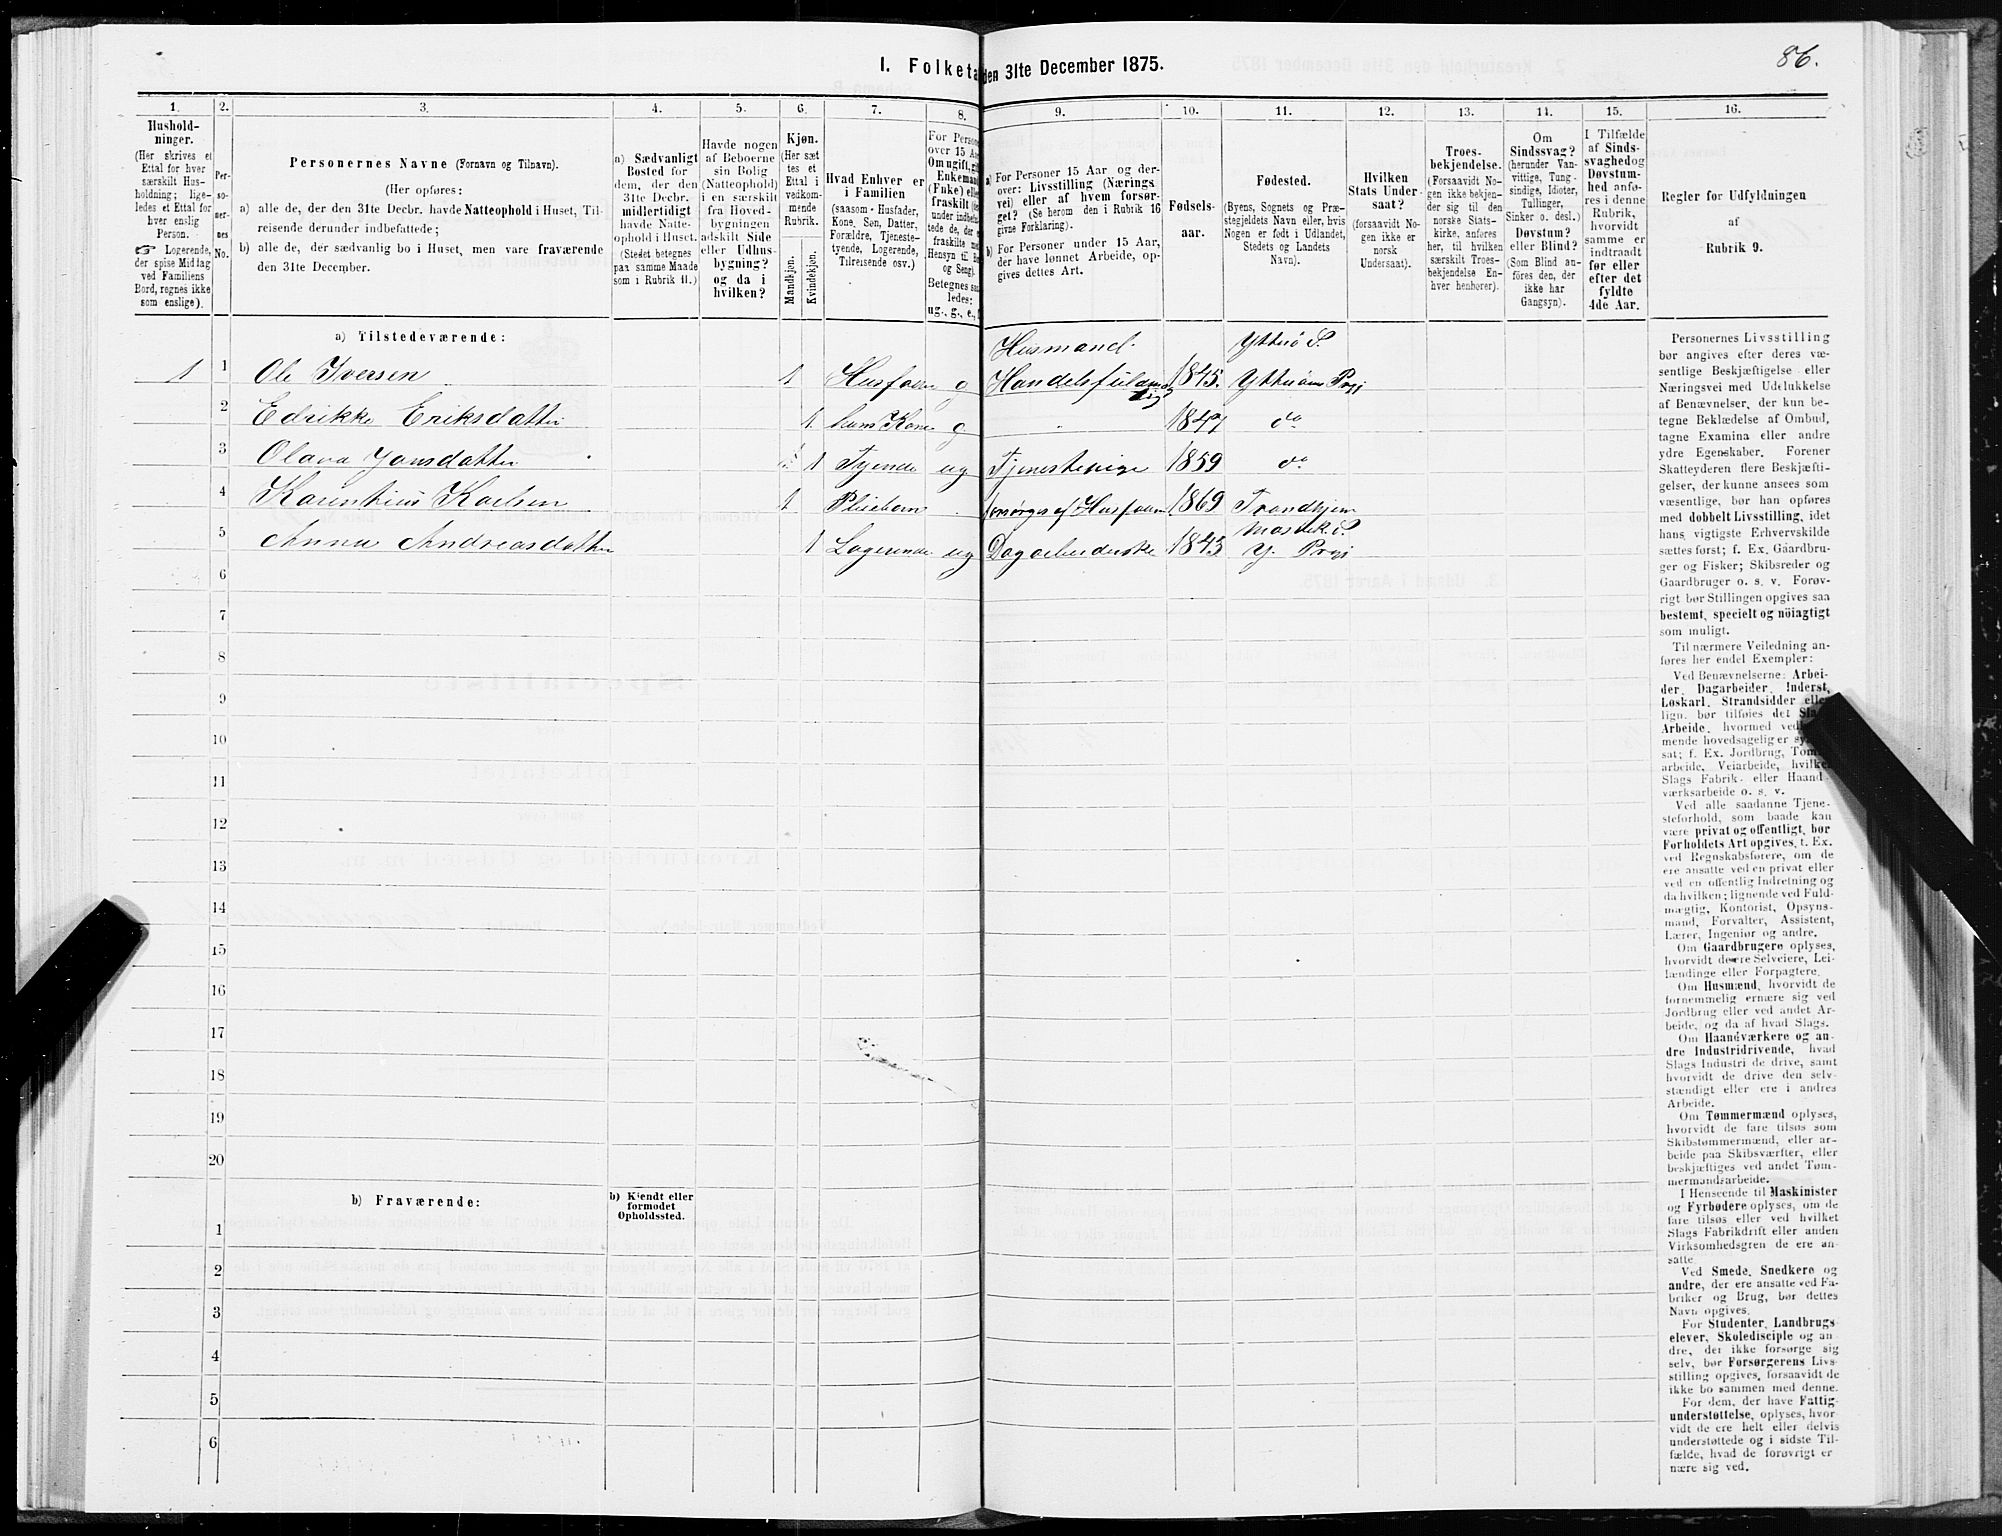 I. Folketa den 31te December 1875.
86.
1.
Hushold-
ninger.
(Her skrives et
Ettal for hver
særskilt Hus-
holdning; lige-
ledes et Ettal for
hver enslig
Person.
☞ Logerende,
der spise Middag
ved Familiens
Bord, regnes ikke
som enslige).
2.
Per-
so-
ner-
nes
No.
3.
Personernes Navne (Fornavn og Tilnavn).
(Her opføres:
a) alle de, der den 31te Decbr. havde Natteophold i Huset, Til-
reisende derunder indbefattede;
b) alle de, der sædvanlig bo i Huset, men vare fraværende
den 31te December.
4.
a) Sædvanligt
Bosted for
dem, der den
31te Decbr.
midlertidigt
havde Natte-
ophold i Huset.
(Stedet betegnes
paa samme Maade
som i Rubrik 11.)
5.
Havde nogen
af Beboerne
sin Bolig
(Natteophold)
i en særskilt
fra Hoved-
bygningen
adskilt Side
eller Udhus-
bygning?
og da i
hvilken?
6.
Kjøn.
(Her sæt
tes et
Ettal i
vedkom-
mende
Rubrik.
Mandkjøn.
Kvindekjøn.
7.
Hvad Enhver er
i Familien
(saasom Husfader,
Kone, Søn, Datter,
Forældre, Tjeneste-
tyende, Logerende,
Tilreisende osv.)
8.
For Person
over 15 Aar
Om ugift, gift
Enkemand
(Enke) eller
fraskilt
under indbefat-
tede de, der
fraskilte med
Hensyn til Bord
og Seng).
Betegnes saa-
ledes:
ug., g., e.,
9.
a) For Personer 15 Aar og der-
over: Livsstilling (Nærings
vei) eller af hvem forsør-
get? (Se herom den i Rubrik 16
givne Forklaring).
b) For Personer under 15 Aar,
der have lønnet Arbeide, op-
gives dettes Art.
10.
Fødsels-
aar.
11.
Fødested.
(Byens, Sognets og Præ-
stegjeldets Navn eller, hvis
Nogen er født i Udlandet,
Stedets og Landets
Navn).
12.
Hvilken
Stats Under-
saat?
(forsaavidt No-
gen ikke er
norsk
Undersaat).
13.
Troes-
bekjendelse.
(Forsaavidt No-
gen ikke bekjen-
der sig til den
norske Stats-
kirke, anføres
her, til hvilken
særskilt Troes-
bekjendelse En-
hver henhører).
14.
Om
Sindssvag?
(herunder Van-
vittige, Tung-
sindige, Idioter,
Tullinger,
Sinker o. desl.)
Døvstum?
eller Blind?
(Som Blind an-
føres den, der
ikke har
Gangsyn).
15.
I Tilfælde
af Sinds-
svaghed og
Døvstum-
hed anfø-
res i denne
Rubrik,
hvorvidt
samme er
indtraadt
før eller
efter det
fyldte
4de Aar.
16.
Regler for Udfyldningen
af
Rubrik 9.
a) Tilstedeværende:
Husmand. Ytterø S.
1 1 Ole Iversen 1 Husfader g Handelsfuldmægtig 1845. Ytterøens Prgj
2 Edrikke Eriksdatter 1 hans Kone g " 1847 do
3 Olava Jonsdatter 1 Tyende ug Tjenestepige 1859 do
4 Karentius Karlsen 1 Pleiebarn forsørges af Husfaderen 1869 Trondhjem
Mosvik S.
5 Anna Andreasdatter 1 Logerende ug Dagarbeiderske 1843 Y. Prgj
6
7
8
9
10
11
12
13
14
15
16
17
18
19
20
b) Fraværende:
b) Kjendt eller
formodet
Opholdssted.
1
2
3
4
5
6
Personernes Livsstilling
bør angives efter deres væ-
sentlige Beskjæftigelse eller
Næringsvei med Udelukkelse
af Benævnelser, der kun be-
tegne Beklædelse af Ombud,
tagne Examina eller andre
ydre Egenskaber. Forener
Skatteyderen flere Beskjæfti-
gelser, der kunne ansees som
væsentlige, bør han opføres
med dobbelt Livsstilling, idet
hans vigtigste Erhvervskilde
sættes først; f. Ex. Gaardbru-
ger og Fisker; Skibsreder og
Gaardbruger o. s. v. Forøv-
rigt bør Stillingen opgives saa
bestemt, specielt og nöiagtigt
som muligt.
Til nærmere Veiledning an-
føres her endel Exempler:
Ved Benævnelserne: Arbei-
der, Dagarbeider, Inderst,
Løskarl, Strandsidder eller
lign. bør tilføies det Slags
Arbeide, hvormed vedkom-
mende hovedsagelig er syssel-
sat; f. Ex. Jordbrug, Tømmer-
arbeide, Veiarbeide, hvilket
Slags Fabrik- eller Haand-
værksarbeide o. s. v.
Ved alle saadanne Tjene-
steforhold, som baade kan
være privat og offentligt, bør
Forholdets Art opgives, f. Ex.
ved Regnskabsførere, om de
ere ansatte ved en privat eller
ved en offentlig Indretning og
da hvilken; lignende ved Fuld-
mægtig, Kontorist, Opsyns-
mand, Forvalter, Assistent,
Lærer, Ingeniør og andre.
Om Gaardbrugere oplyses,
hvorvidt de ere Selveiere, Lei-
lændinge eller Forpagtere.
Om Husmænd, hvorvidt de
fornemmelig ernære sig ved
Jordbrug eller ved andet Ar-
beide, og da af hvad Slags.
Om Haandværkere og an-
dre Industridrivende, hvad
Slags Industri de drive, samt
hvorvidt de drive den selv-
stændigt eller ere i andres
Arbeide.
Om Tømmermænd oplyses,
hvorvidt de fare tilsøs som
Skibstømmermænd, eller ar-
beide paa Skibsværfter, eller
beskjæftiges ved andet Tøm-
mermandsarbeide.
I Henseende til Maskinister
og Fyrbødere oplyses, om de
fare tilsøs eller ved hvilket
Slags Fabrikdrift eller anden
Virksomhedsgren de ere an-
satte.
Ved Smede, Snedkere og
andre, der ere ansatte ved Fa-
briker og Brug, bør dettes
Navn opgives.
For Studenter, Landbrugs-
elever, Skoledisciple og an-
dre, der ikke forsørge sig
selv, bør Forsørgerens Livs-
stilling opgives, forsaavidt de
ikke bo sammen med denne.
For dem, der have Fattig-
understøttelse, oplyses, hvor-
vidt de ere helt eller delvis
understøttede og i sidste Til-
fælde, hvad de forøvrigt er
nære sig ved.